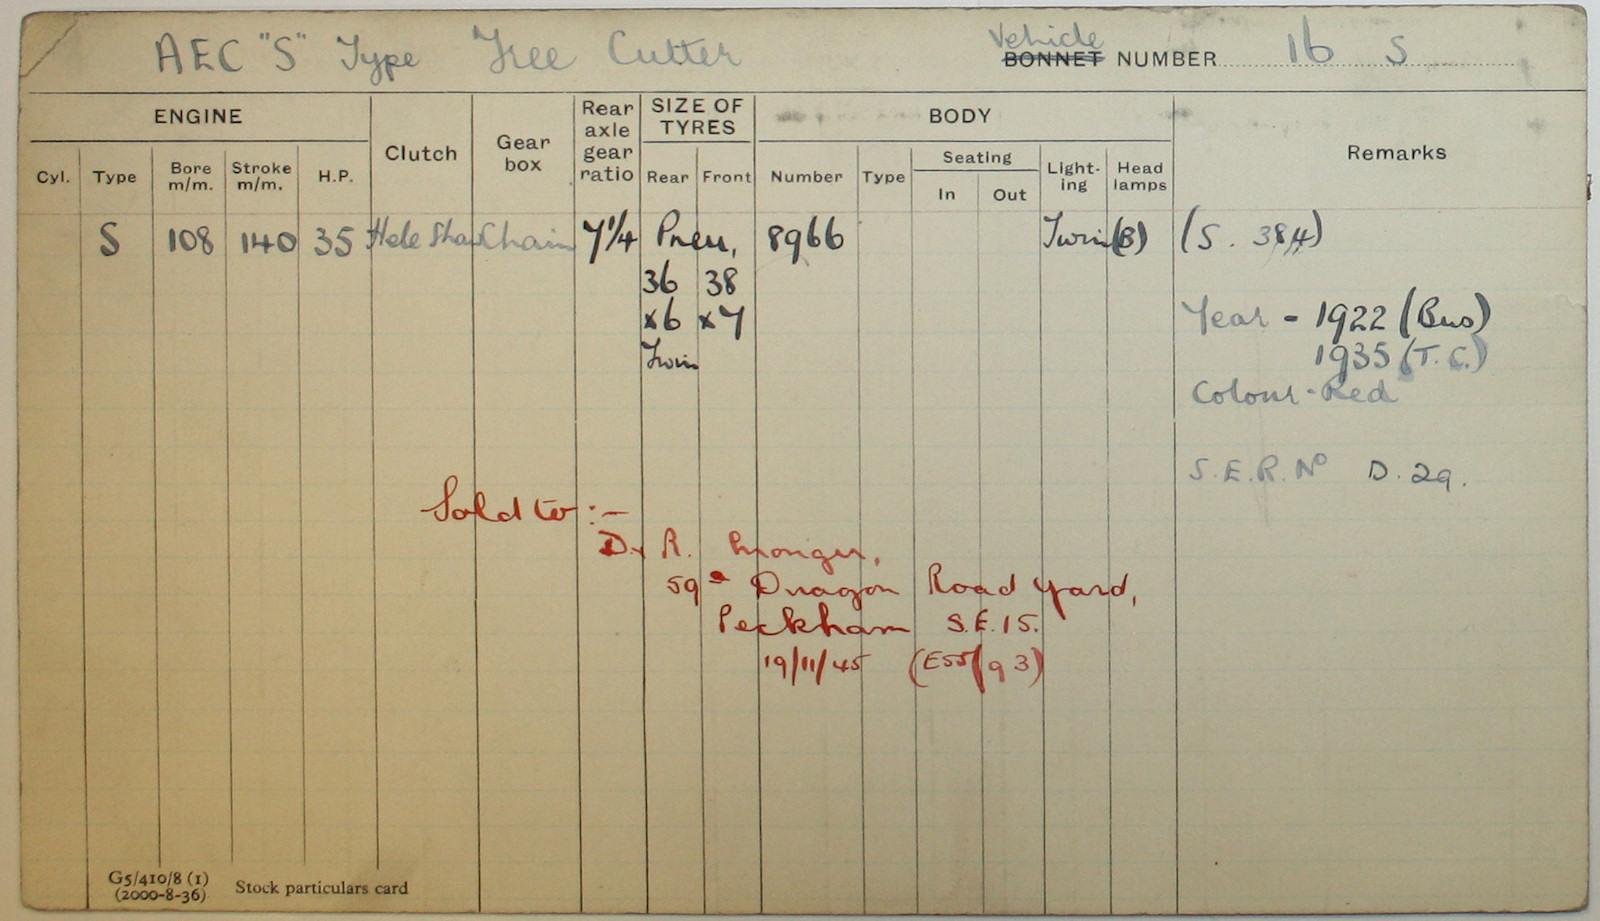 AEC "S" Type Tree Cutter
Vehicle
BONNET NUMBER 16 S
ENGINE Clutch Gear box Rear axle gear ratio SIZE OF TYRES BODY Remarks
Cyl. Type Bore m/m. Stroke m/m. H.P. Rear Front Number Type Seating In Out Light-ing Head lamps
S 108 140 35 Hele Shaw Chain 7¼ Pneu, 8966 Twin (B) (S. 384)
36 38
x6 x7
Twin
Year - 1922 (Bus)
1935 (T.C.)
Colour - Red
S.E.R. No D.29.
Sold to :-
R.
59a Dragon Road Yard,
Peckham S.E.15.
19/11/45 (E55/93)
G5/410/8 (1)
(2000-8-36)
Stock particulars card